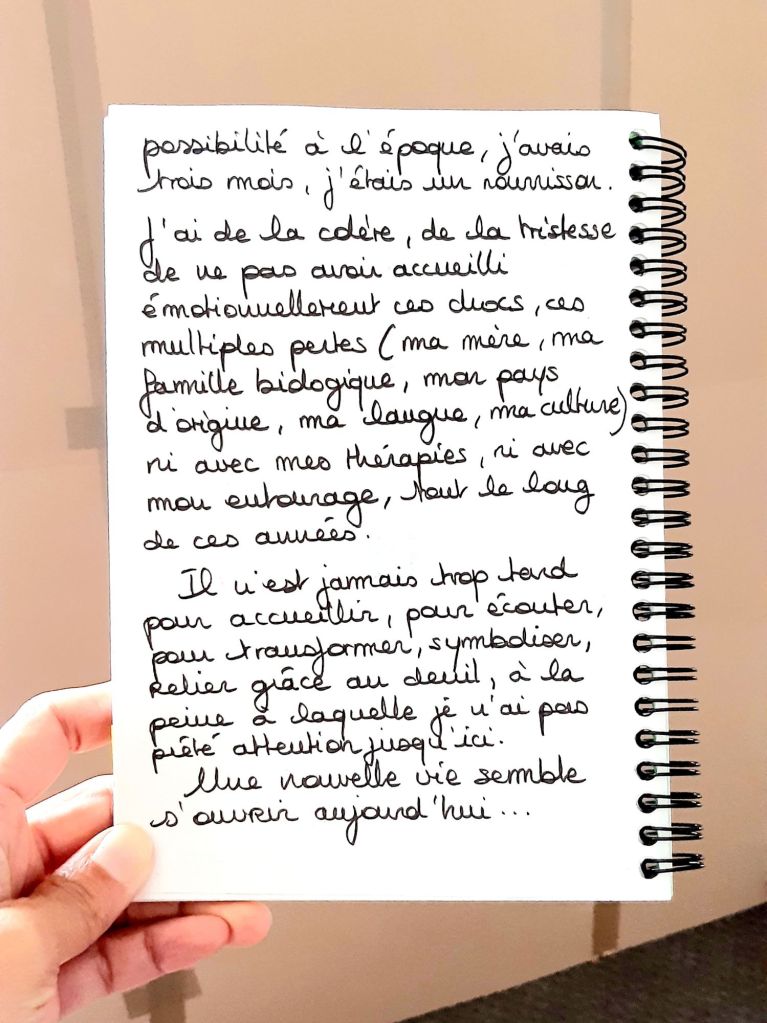 possibilité à l'époque, j'avais
trois mois, j'étais un nourrisson.
J'ai de la colère, de la tristesse
de ne pas avoir accueilli
émotionnellement ces chocs, ces
multiples pertes (ma mère, ma
famille biologique, mon pays
d'origine, ma langue, ma culture)
ni avec mes thérapies, ni avec
mon entourage, tout le long
de ces années.
Il n'est jamais trop tard
pour accueillir, pour écouter,
pour transformer, symboliser,
relier grâce au deuil, à la
peine à laquelle je n'ai pas
prêté attention jusqu'ici.
Une nouvelle vie semble
s'ouvrir aujourd'hui...